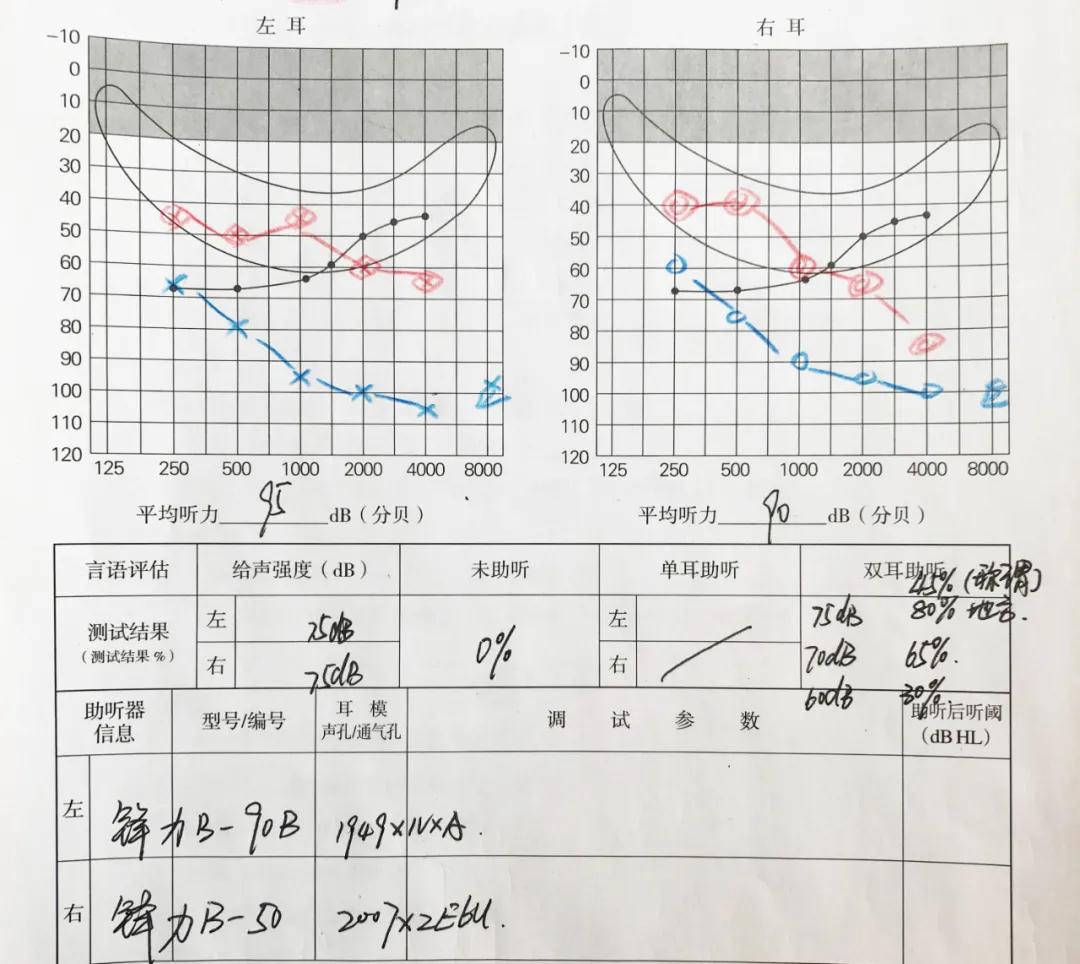 左耳 右耳
-10 -10
0 0
10 10
20 20
30 30
40 40
50 50
60 60
70 70
80 80
90 90
100 100
110 110
120 120
125 250 500 1000 2000 4000 8000 125 250 500 1000 2000 4000 8000
平均听力 95 dB(分贝) 平均听力 90 dB(分贝)
言语评估 给声强度(dB) 未助听 单耳助听 双耳助听
45%(称谓)
测试结果
(测试结果%)
左 75dB
右 75dB
0%
左
右
75dB 80% 地名.
70dB 65%.
60dB 30%.
助听器
信息
型号/编号
耳模
声孔/通气孔
调试参数
助听后听阈
(dB HL)
左 锋力B-90B 1949×1V×A.
右 锋力B-50 2007×2E6U.